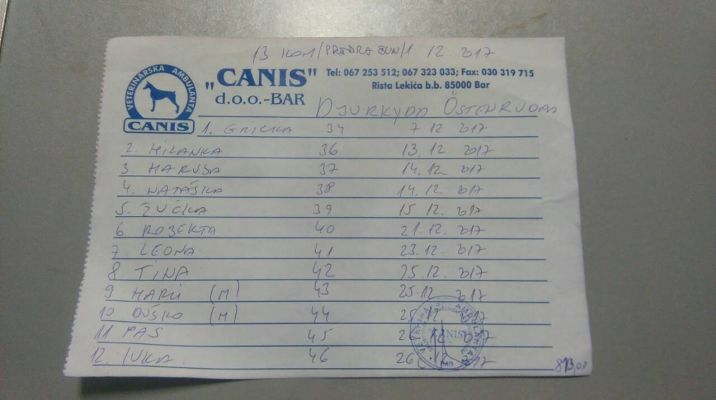 13 KOM/PREDRAČUN/1 12 2017
VETERINARSKA AMBULANTA
CANIS
"CANIS"
d.o.o.-BAR
Tel: 067 253 512; 067 323 033; Fax: 030 319 715
Rista Lekića b.b. 85000 Bar
DJURKYDD ÖSTENRUDA
1. GRICKA 34 7 12 2017
2. MILANKA 36 13 12 2017
3 MARUSA 37 14 12 2017
4. NATAŠKA 38 14 12 2017
5. ŽUĆKA 39 15 12. 2017
6 ROBERTA 40 21. 12. 2017
7 LEONA 41 23. 12 2017
8 TINA 42 25. 12 2017
9 (M) 43 25.12 2017
10 DUŠKO (M) 44 12 2017
11 PAS 45 12 2017
12. 46 26. 12. 2017
CANIS